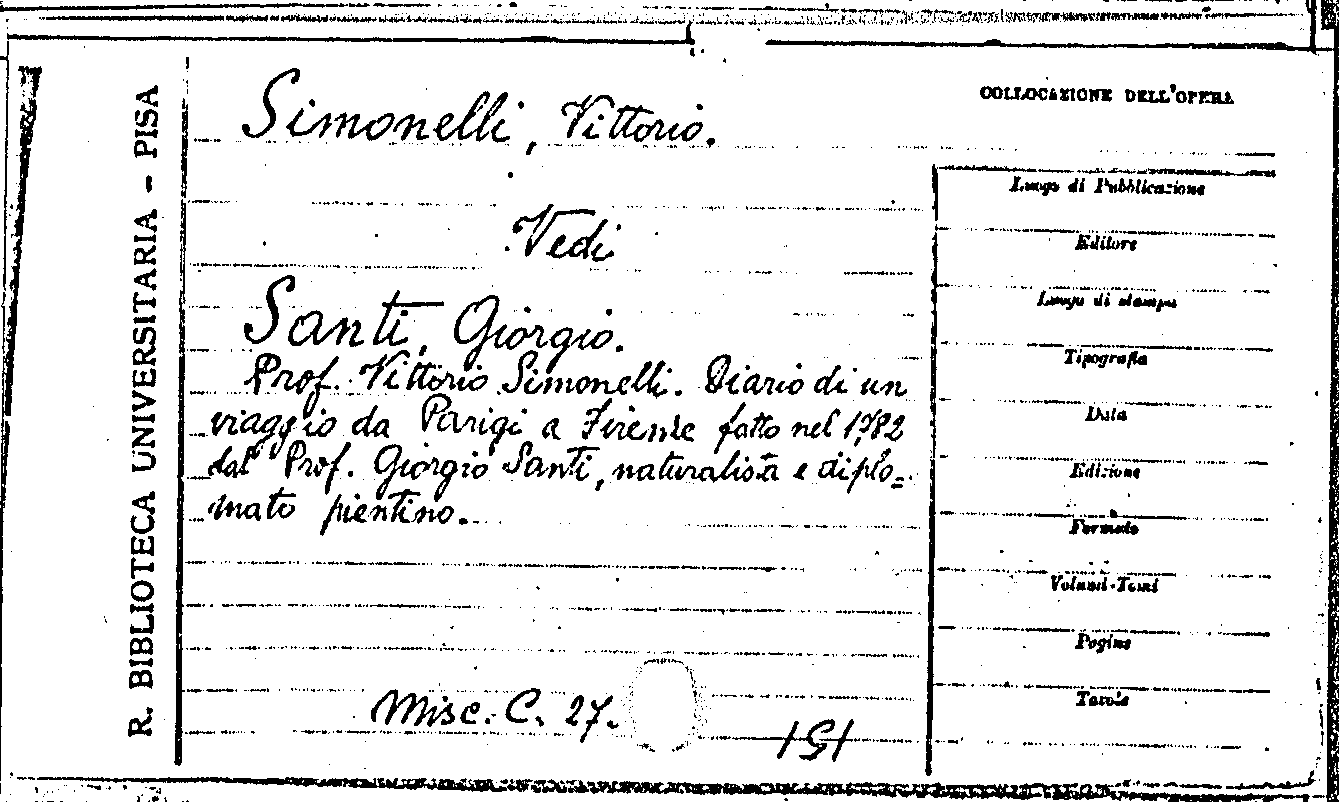 R. BIBLIOTECA UNIVERSITARIA - PISA
Simonelli, Vittorio.
Vedi
Santi, Giorgio.
Prof. Vittorio Simonelli. Diario di un
viaggio da Parigi a Firenze fatto nel 1782
dal Prof. Giorgio Santi, naturalista e diplo=
mato pientino.
Misc. C. 27.
COLLOCAZIONE DELL'OPERA
Luogo di Pubblicazione
Editore
Luogo di stampa
Tipografia
Data
Edizione
Formato
Volumi-Tomi
Pagine
Tavole